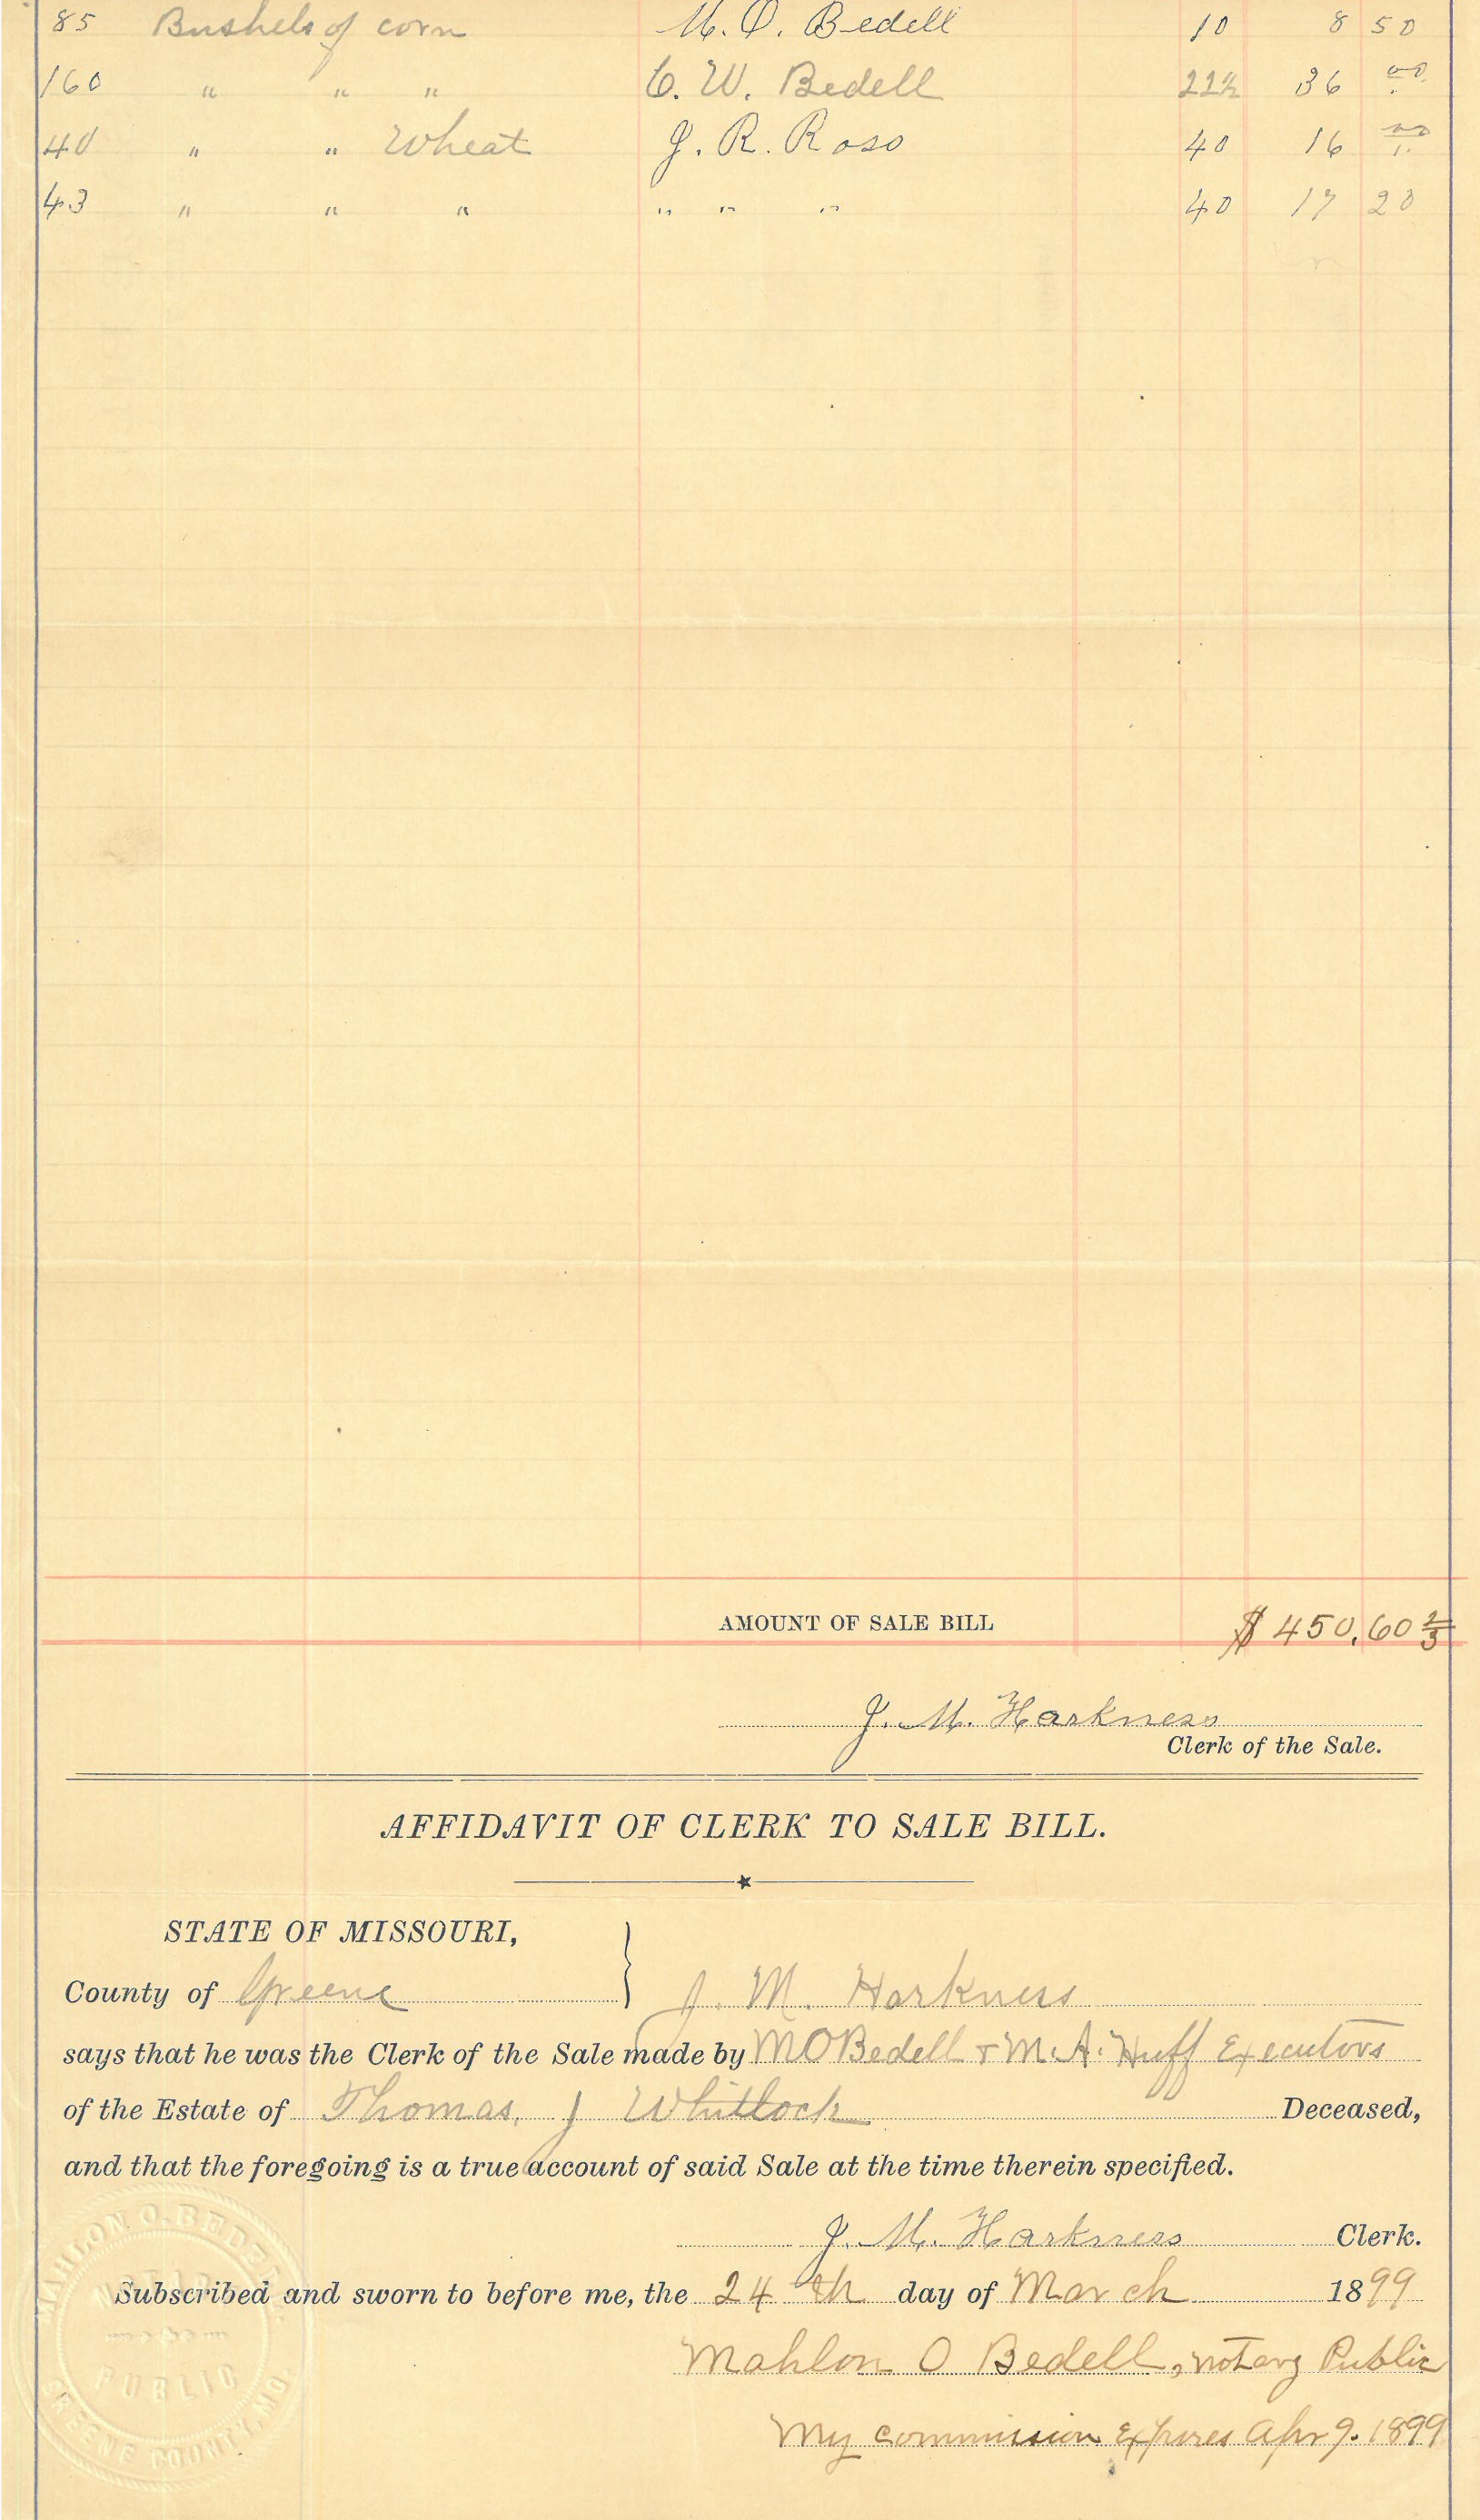 85 Bushels of corn M. O. Bedell 10 8 50
160 " " " C. W. Bedell 22½ 36 00
40 " " Wheat J. R. Ross 40 16 00
43 " " " " " " 40 17 20
AMOUNT OF SALE BILL $ 450,60 2/3
J. M. Harkness
Clerk of the Sale.
AFFIDAVIT OF CLERK TO SALE BILL.
STATE OF MISSOURI,
County of Greene } J. M. Harkness
says that he was the Clerk of the Sale made by M O Bedell & M. A. Huff Executors
of the Estate of Thomas, J Whitlock Deceased,
and that the foregoing is a true account of said Sale at the time therein specified.
J. M. Harkness Clerk.
Subscribed and sworn to before me, the 24 th day of March 1899
Mahlon O Bedell, notary Public
My commission Expires Apr 9. 1899
MAHLON O. BEDE
NOTARY
PUBLIC
GREENE COUNTY, MO.